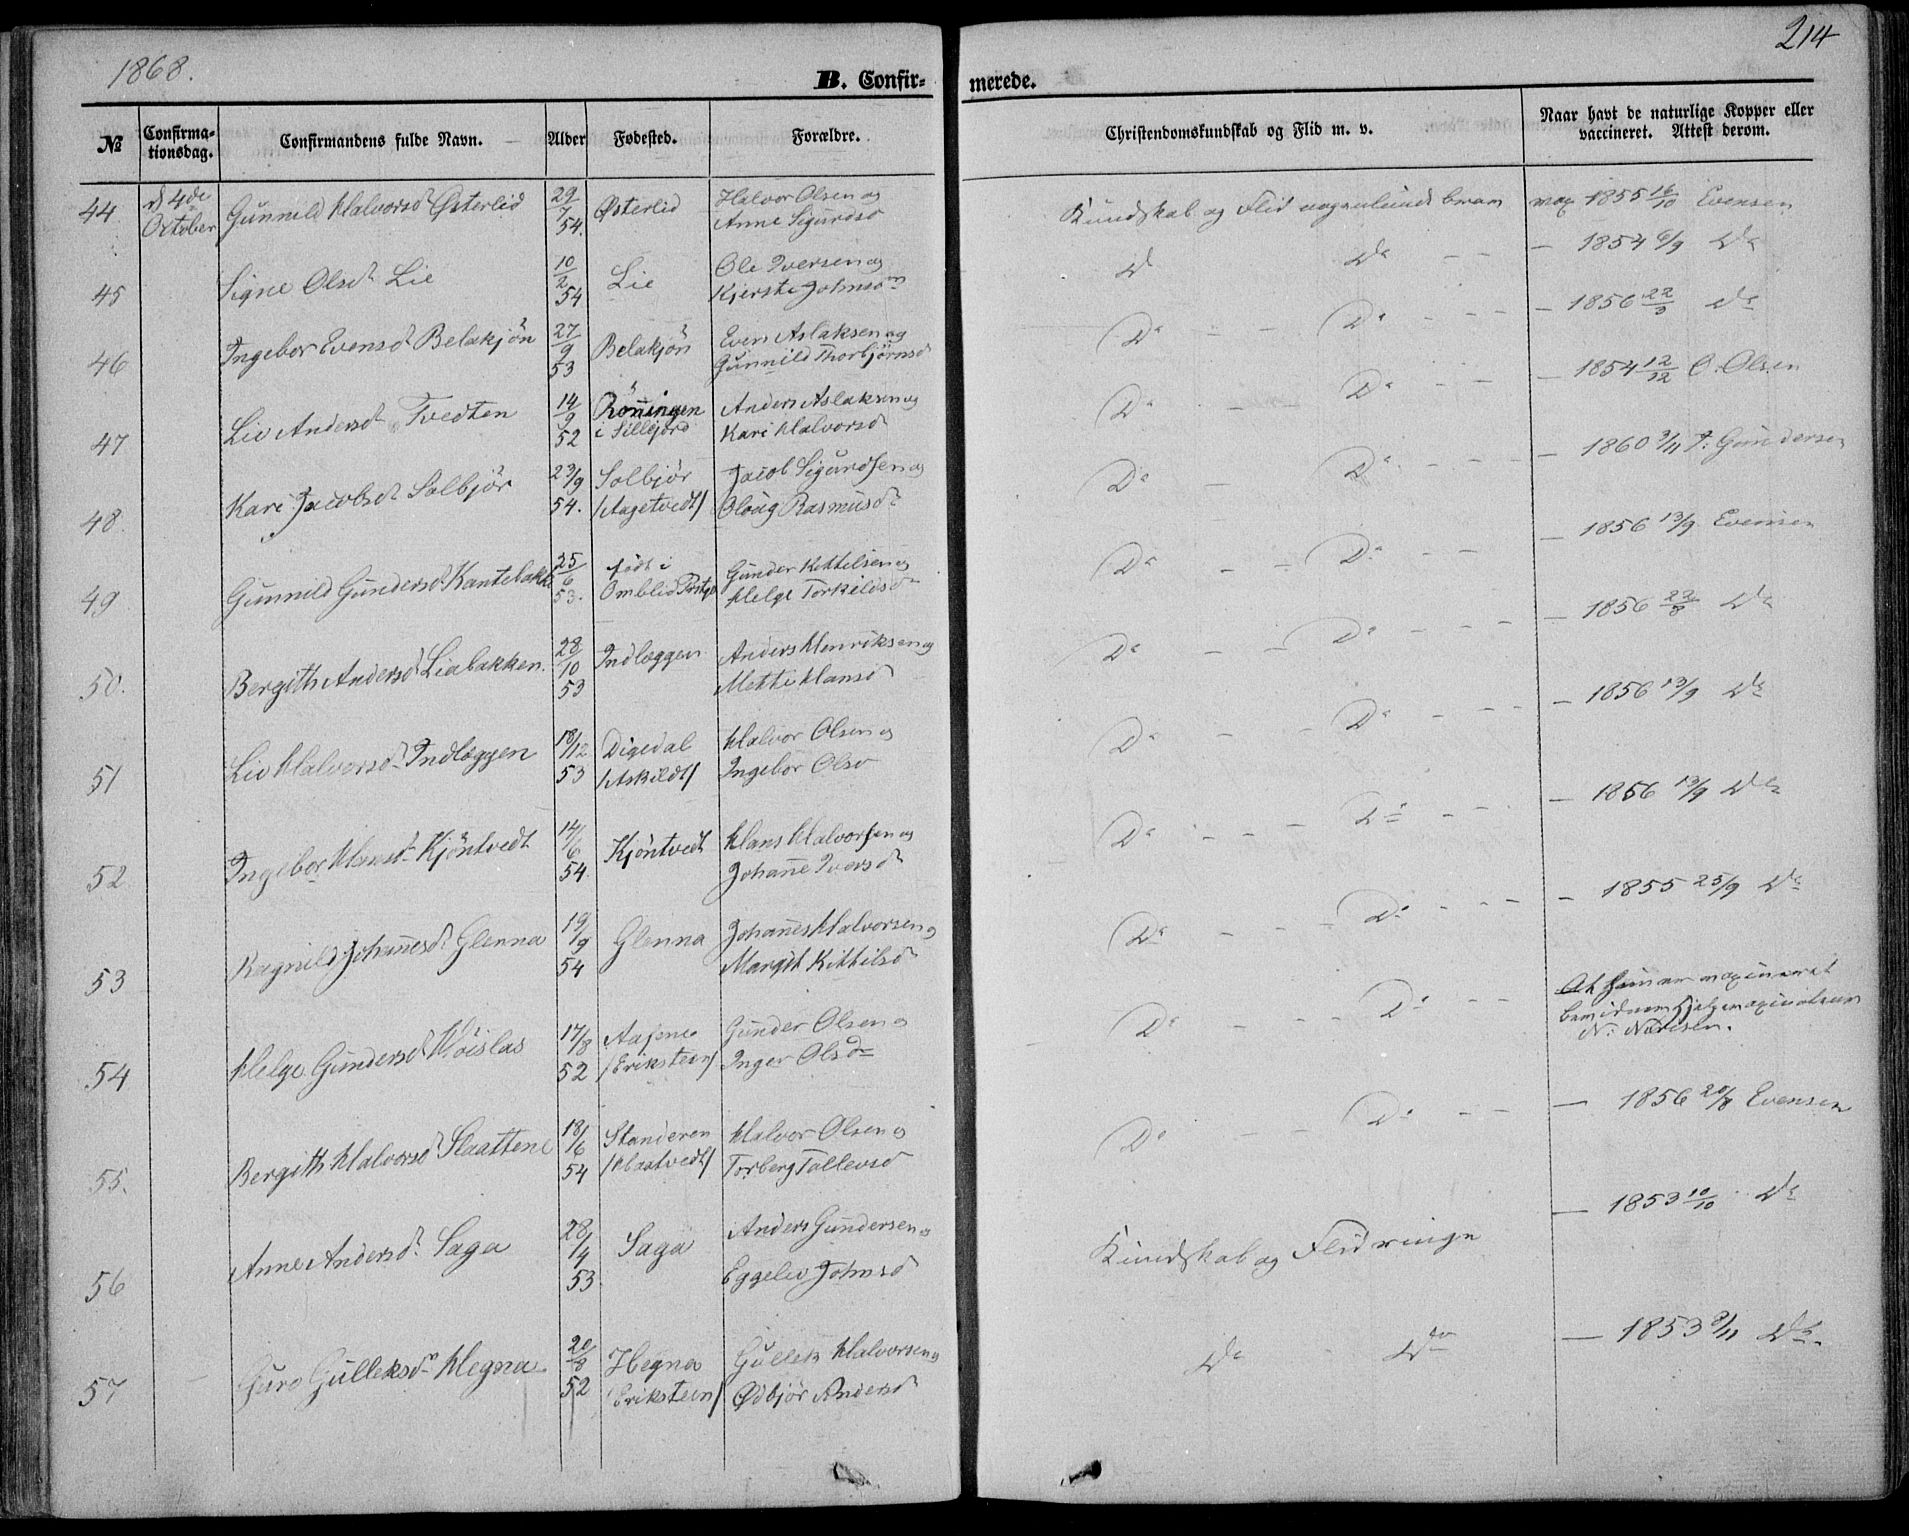 1868.
214
B. Confir-
merede.
№
Confirma-
tionsdag.
Confirmandens fulde Navn.
Alder
Fødested.
Forældre.
Christendomskundskab og Flid m. v.
Naar havt de naturlige Kopper eller
vaccineret. Attest derom.
44 d 4de October Gunnild Halvorsd Østerlid 29/7 54. Østerlid Halvor Olsen og
Anne Sigurdsd
Kundskab og Flid nogenlunde vax 1855 16/10 Evensen
45 Signe Olsd Lie 10/2 54 Lie Ole Iversen og
Kjersti Johnsd
Do Do - - — 1854 6/9 Do
46 Ingebor Evensd Belakjön 27/9 53 Belakjön Even Aslaksen og
Gunnild Thorbjørnsd
Do - - Do - - - — 1856 22/3 Do
47 Liv Andersd Tvedten 14/9 52 Rönningen
i Silljord
Anders Aslaksen og
Kari Halvorsd
Do - - Do - - — 1854 12/12 O. Olsen
48. Kari Jacobsd Solbjör 23/9 54. Solbjör
/Aagetvedt/
Jacob Sigurdsen og
Oloug Rasmusd
Do - - Do - - - — 1860 3/11 Gundersen
49 Gunnild Gundersd Kantebakk 25/6 53. født i
Omblid
Gunder Kittelsen og
Helge Torkildsd
Do - - Do - - — 1856 13/9 Evensen
50. Bergith Andersd Liabakken. 28/10 53 Indlæggen Anders Henriksen og
Mette Hansd
Do - - Do - - - — 1856 22/8 Do
51 Liv Halvorsd Indlæggen 18/12 53 Digedal
/Askildt/
Halvor Olsen og
Ingebor Olsd
Do - - - Do - - - — 1856 13/9 Do
52 Ingebor Hansd Kjöntvedt 14/6 54 Kjöntvedt Hans Halvorsen og
Johanne Iversd
Do - - - Do - - — 1856 13/9 Do
53 Ragnild Johannesd Glenna 19/9 54 Glenna Johannes Halvorsen og
Margit Kittilsd
Do - - - Do - - - — 1855 25/9 Do
54 Helge Gundersd Höislas 17/8 52 Aasene
/Eriksteen/
Gunder Olsen og
Inger Olsdr
Do - - - Do - - At hun er vaxineret
bevidnes
N. Nielsen.
55. Bergith Halvorsd Slaattene 18/6 54 Standeren
/Haatvedt/
Halvor Olsen og
Torberg Tollevsd
Do - - Do - - — 1856 20/8 Evensen
56 Anne Andersd Saga 28/4 53 Saga Anders Gundersen og
Eggelev Johnsd
Kundskab og Flid ringe — 1853 10/10 Do
57 Guro Gulleksd Hegna 20/8 52 Hegna
/Eriksteen/
Gullek Halvorsen og
Ødbjör Andersd
Do - Do — 1853 9/11 Do